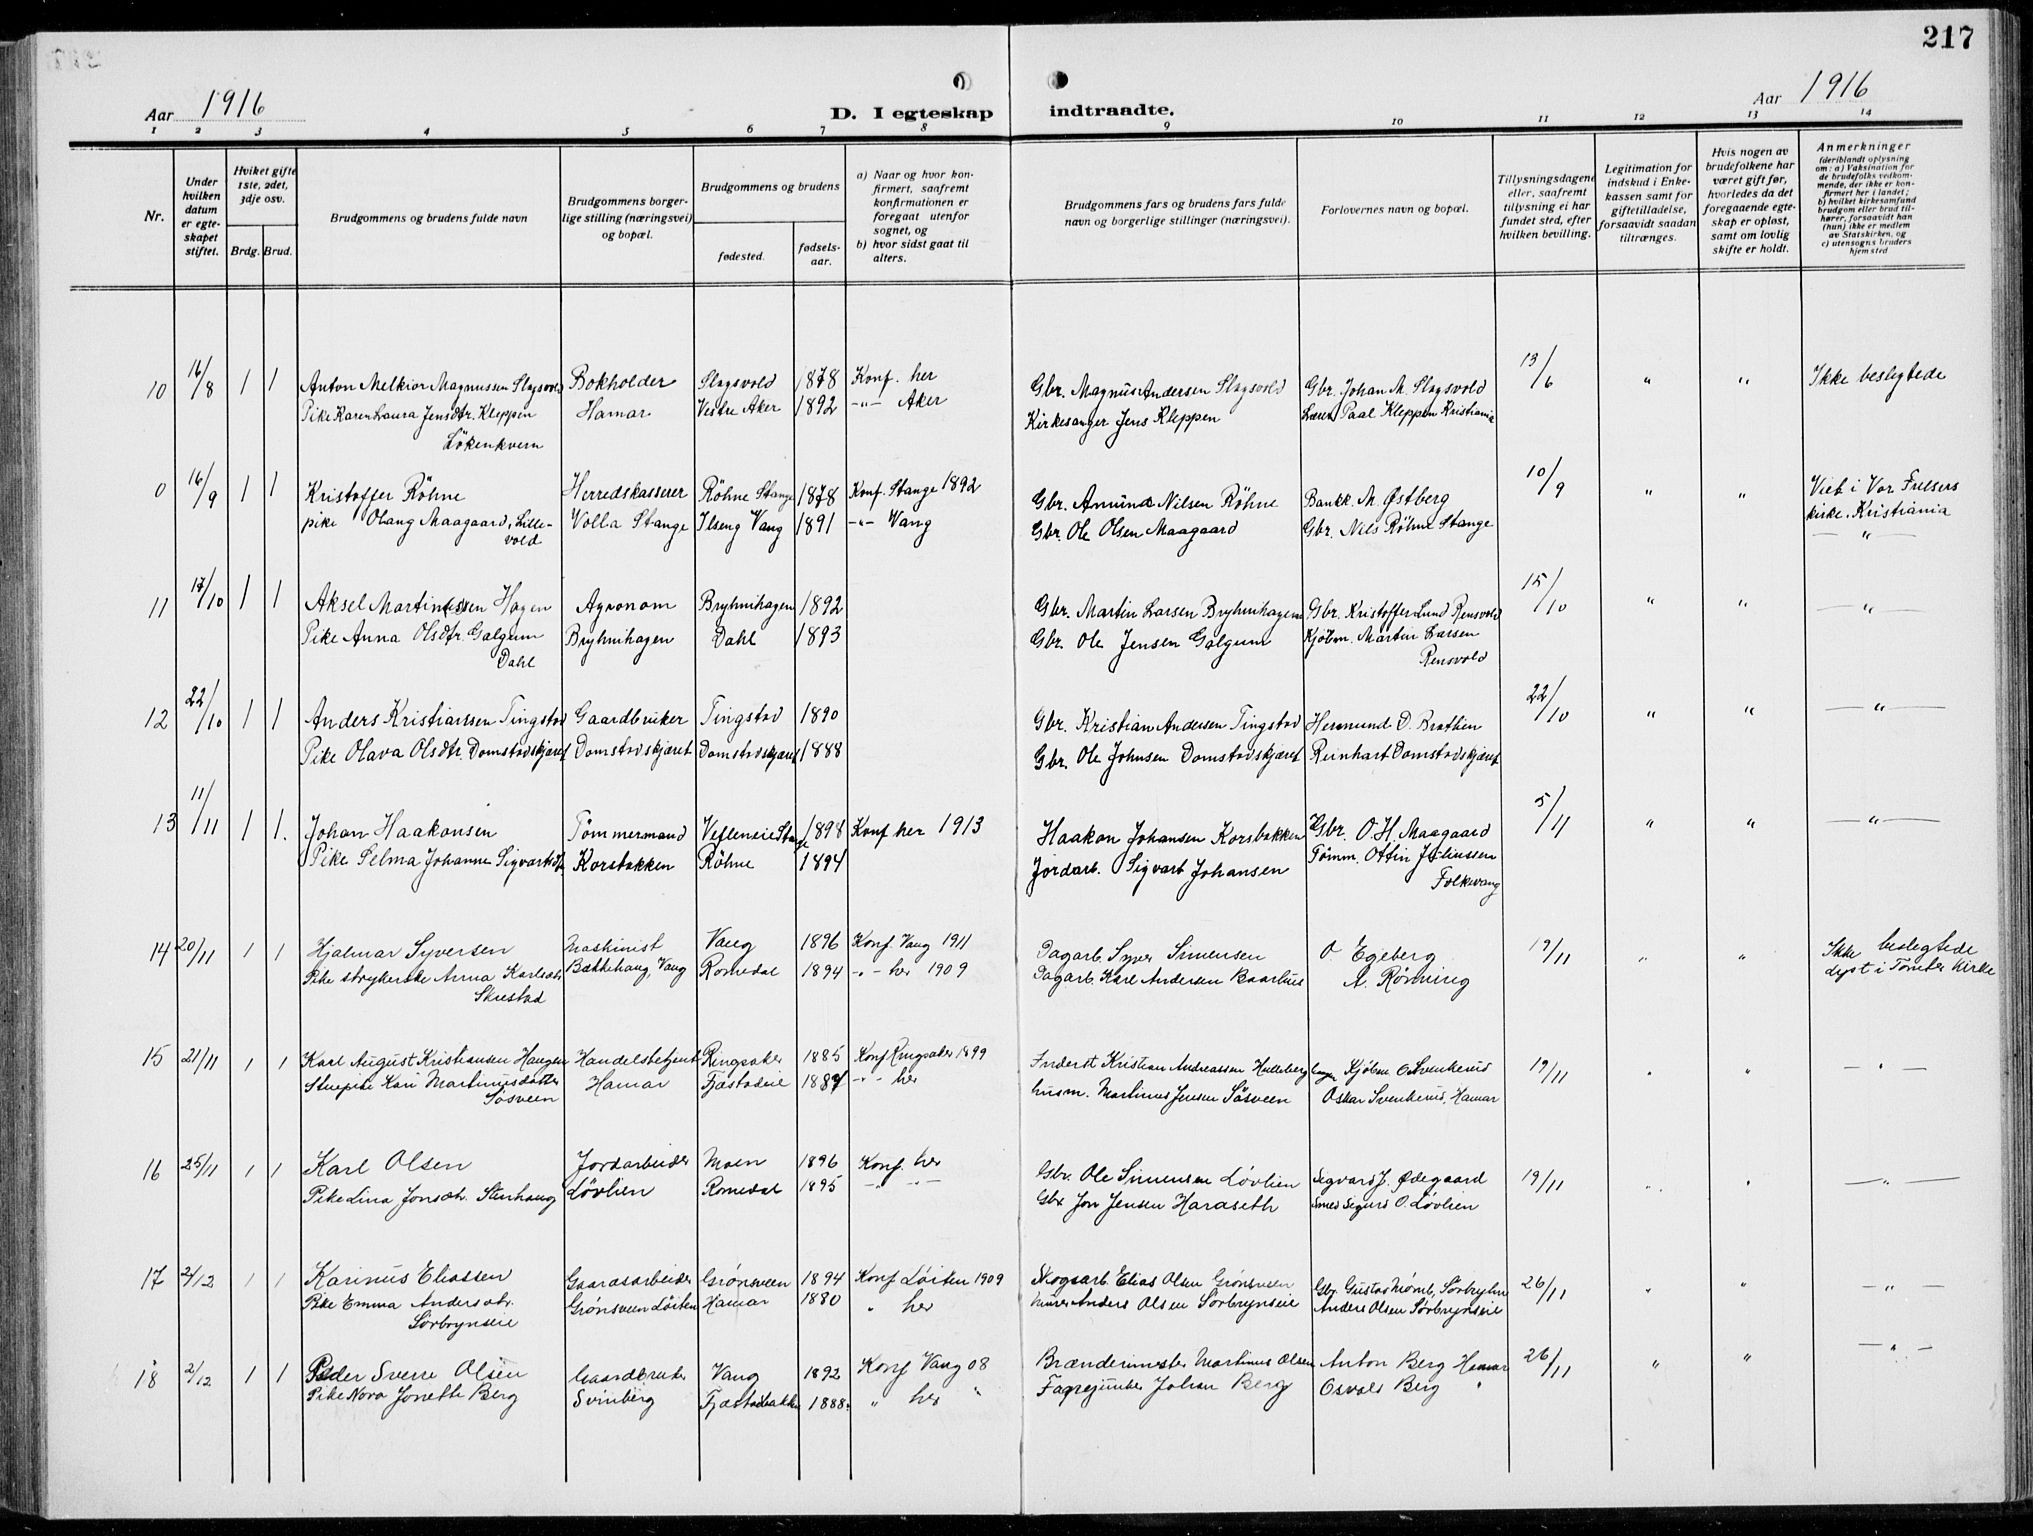 217
Aar 1916
D. I egteskap indtraadte.
Aar 1916
1 2 3 4 5 6 7 8 9 10 11 12 13 14
Nr.
Under hvilken datum er egteskapet stiftet.
Hviket gifte 1ste, 2det, 3dje osv.
Brdg. Brud.
Brudgommens og brudens fulde navn
Brudgommens borgerlige stilling (næringsvei) og bopæl.
Brudgommens og brudens
fødested.
fødselsaar.
a) Naar og hvor konfirmert, saafremt konfirmationen er foregaat utenfor sognet, og
b) hvor sidst gaat til alters.
Brudgommens fars og brudens fars fulde navn og borgerlige stillinger (næringsvei).
Forlovernes navn og bopæl.
Tillysningsdagene eller, saafremt tillysning ei har fundet sted, efter hvilken bevilling.
Legitimation for indskud i Enkekassen samt for giftetilladelse, forsaavidt saadan tiltrænges.
Hvis nogen av brudefolkene har været gift før, hvorledes da det foregaaende egteskap er opløst, samt om lovlig skifte er holdt.
Anmerkninger
(deriblandt oplysning om: a) Vaksination for de brudefolks vedkommende, der ikke er konfirmert her i landet; b) hvilket kirkesamfund brudgom eller brud tilhører, forsaavidt han (hun) ikke er medlem av Statskirken, og c) utensogns bruders hjemsted
10 16/8 1 1 Anton Melkior Magnussen Slagsvold Bokholder Slagsvold 1878 Konf. her Gbr. Magnus Andersen Slagsvold Gbr. Johan M. Slagsvold 13/6 " " Ikke beslegtede
Pike Karen Laura Jensdtr. Kleppen Hamar Vestre Aker 1892 -"- Aker Kirkesanger Jens Kleppen Lærer Paal Kleppen Kristiania
Løkenkvern
0 16/9 1 1 Kristoffer Röhne Herredskasserer Röhne Stange 1878 Konf. Stange 1892 Gbr. Amund Nilsen Röhne Bankk. M. Østberg 10/9 " " Viet i Vor Frelsers
pike Olaug Maagaard, Lille- Volla Stange Ilseng Vang 1891 -"- Vang Gbr. Ole Olsen Maagaard Gbr. Nils Röhne Stange kirke. Kristiania
vold — " —
11 17/10 1 1 Aksel Martinussen Hagen Agronom Bryhnihagen 1892 Gbr. Martin Larsen Bryhnihagen Gbr. Kristoffer Lund Rensvold 15/10 " " — " —
Pike Anna Olsdtr. Galgum Bryhnihagen Dahl 1893 Gbr. Ole Jensen Galgum Kjøbm. Martin Larsen
Dahl Rensvold
12 22/10 1 1 Anders Kristiansen Tingstad Gaardbruker Tingstad 1890 Gbr. Kristian Andersen Tingstad Hermund D. Brathen 22/10 " " — " —
Pike Olava Olsdtr. Domstadskjæret Domstadskjæret Domstadskjæret 1888 Gbr. Ole Johnsen Domstadskjæret Reinhart Domstadskjæret
13 11/11 1 1. Johan Haakonsen Tömmermand Vefleneie Stange 1898 Konf her 1913 Haakon Johansen Korsbakken Gbr. O. H. Maagaard 5/11 " " — " —
Pike Selma Johanne Sigvartsdtr Korsbakken Röhne 1894 Jordarb. Sigvart Johansen Tömm. Ottin Juliussen
Folkvang
14 20/11 1 1 Hjalmar Syversen Maskinist Vang 1896 Konf. Vang 1911 Dagarb. Syver Simensen O Egeberg 19/11 " " Ikke beslegtede
Pike strykerske Anna Karlsdtr. Bækkehaug, Vang Romedal 1894 -"- her 1909 Dagarb. Karl Andersen Baarhus A. Rønning lyst i Tomter Kirke
Skrestad
15 21/11 1 1 Karl August Kristiansen Haugen Handelsbetjent Ringsaker 1885 Konf Ringsaker 1899 Inderst Kristian Andreassen Hulleberg Kjøbm O Svenkerud 19/11 " " — " —
Stuepike Kari Martinusdatter Hamar Fjæstadeie 1887 -"- her husm. Martinus Jensen Såsveen Oskar Svenkerud, Hamar
Såsveen
16 25/11 1 1 Karl Olsen Jordarbeider Moen 1896 Konf. her Gbr. Ole Simensen Løvlien Sigvard J. Ødegaard 19/11 " " — " —
Pike Lina Jonsdtr. Stenhaug Løvlien Romedal 1895 — " — Gbr. Jon Jensen Haraseth Smed Sigurd O. Løvlien
17 2/12 1 1 Karinus Eliassen Gaardsarbeider Grønsveen 1894 Konf Løiten 1909 Skogsarb. Elias Olsen Grønsveen Gbr. Gustav Mømb, Sørbryhn 26/11 " " — " —
Pike Emma Andersdtr. Grønsveen Løiten Hamar 1880 " her Murer Anders Olsen Sørbrynseie Anders Olsen Sørbrynseie
Sørbrynseie
18 2/12 1 1 Peder Sverre Olsen Gaardbruker Vang 1892 Konf Vang 08 Brændemester Martinus Olsen Anton Berg Hamar 26/11 " " — " —
Pike Nora Jonette Berg Svinberg Fjæstadbakken 1888. " her " Johan Berg Osvald Berg "